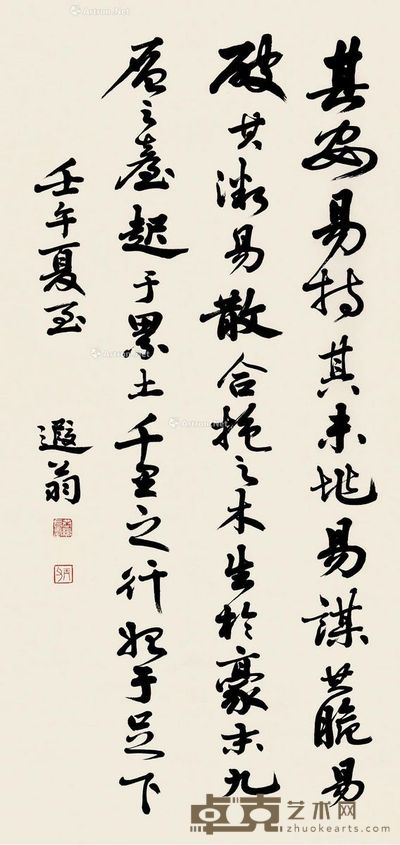 其安易持其未兆易謀其脆易
破其微易散合抱之木生於豪末九
層之臺起于累土千里之行始于足下
壬午夏至
遐翁
卓克艺术网
zhuokearts.com
Artron.Net